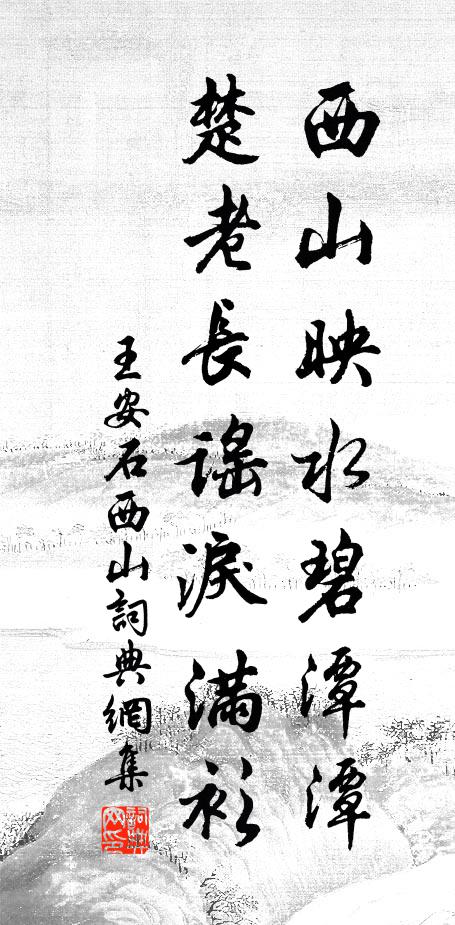 西山映水碧潭潭
楚老長謡淚滿衫
王安石西山詞典網集
詞典网集